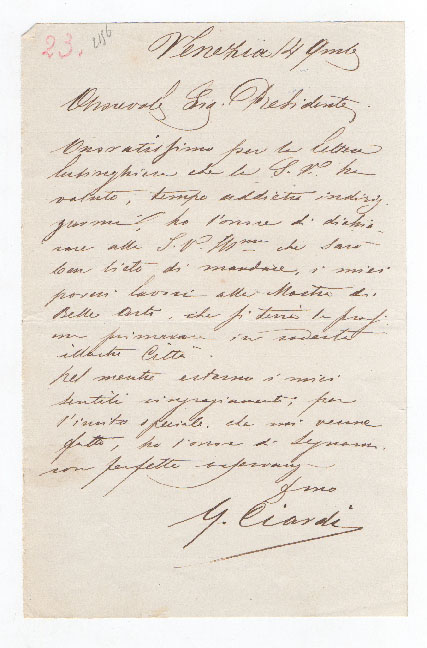 23. 256
Venezia 14 9mbre
Onorevole Sig. Presidente,
Onoratissimo per la lettera
lusinghiera che la S.V. ha
voluto, tempo addietro indiriz-
zarmi, ho l'onore di dichia-
rare alla S.V. Ill.ma che sarò
ben lieto di mandare, i miei
poveri lavori alla Mostra di
Belle Arti, che si terrà la pross
ima primavera in codesta
illustre Città.
Nel mentre esterno i miei
sentiti ringraziamenti, per
l'invito speciale, che mi venne
fatto, ho l'onore di segnarmi
con perfetta osservanz
G. Ciardi